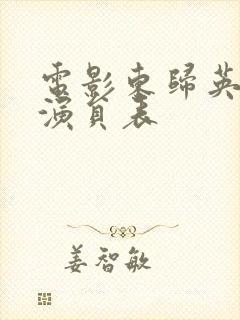 電影東歸英
演員表
姜智敏